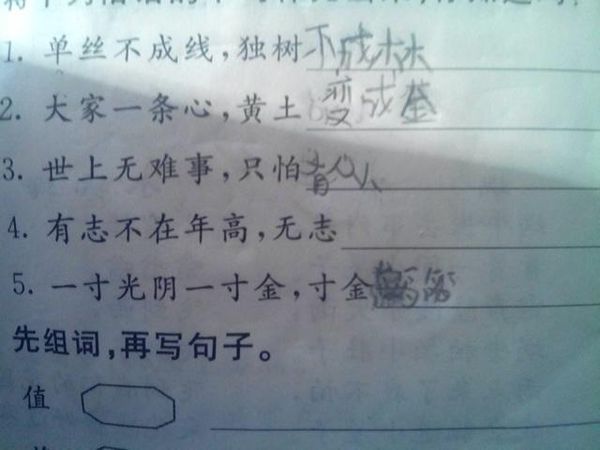 1. 单丝不成线,独树不成林
2. 大家一条心,黄土变成金
3. 世上无难事,只怕有
4. 有志不在年高,无志
5. 一寸光阴一寸金,寸金
先组词,再写句子。
值